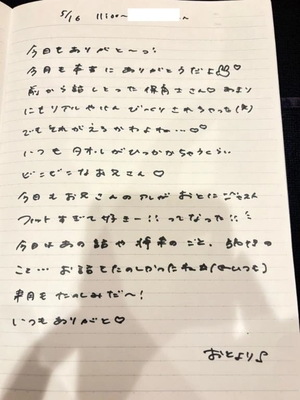 5/16 11:00〜
今日もありがと〜っ
今月も幸せにありがとうだよ♡
前から話しとった保育士さん♡あまり
にもリアルやけん びっくりされちゃった(笑)
でもそれがえろかわよね…♡♡
いつもタオルがひっかかっちゃうくらい
ビンビンなお兄さん♡
今日もお兄さんのアレがおとに
フィットすぎて好きー!!ってなった!!
今日はあの話や将来のこと、
こと…お話もたのしかったね(いつも)
来月もたのしみだ〜!
いつもありがと♡
おとより♪